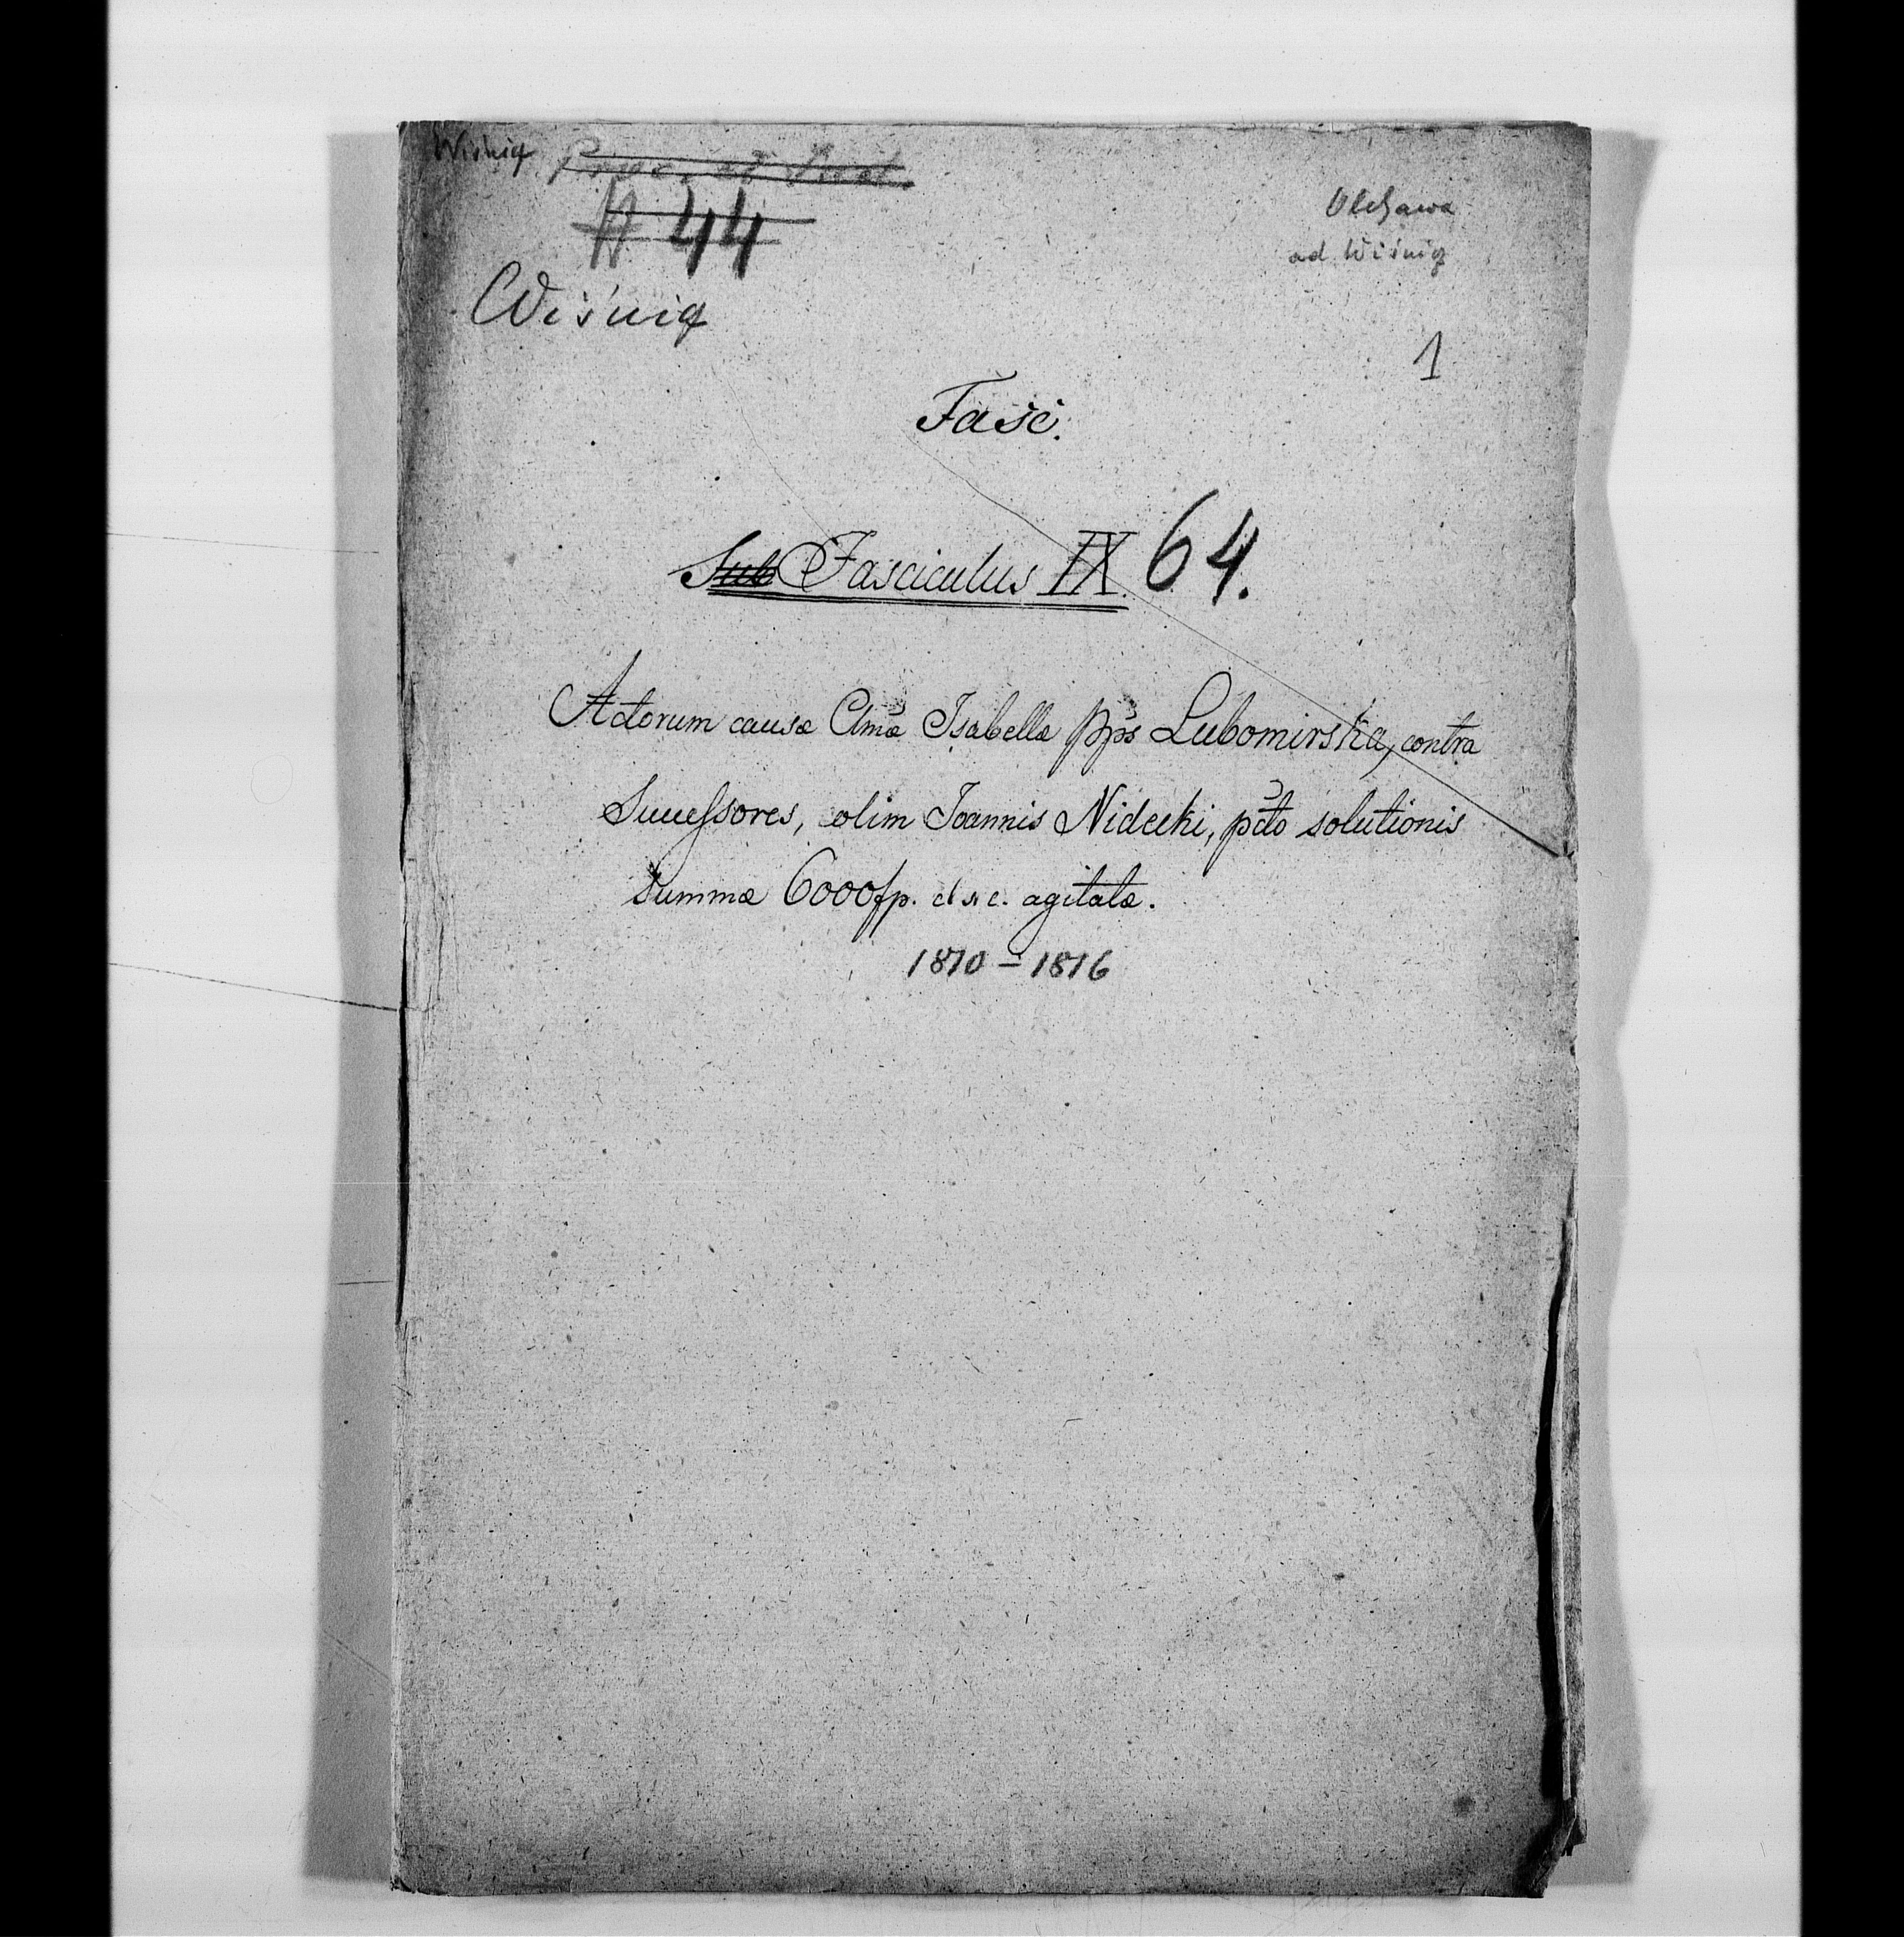 Wiśnicz
№ 44
Olchawa
ad Wiśnicz
Wiśnicz
1
Fasc.
Sub Fasciculus IX. 64.
Actorum causæ Clmæ Isabellæ Ppis Lubomirska, contra
Successores, olim Joannis Nidecki, pcto solutionis
summæ 6000 fp. c. s. c. agitatæ.
1810 – 1816